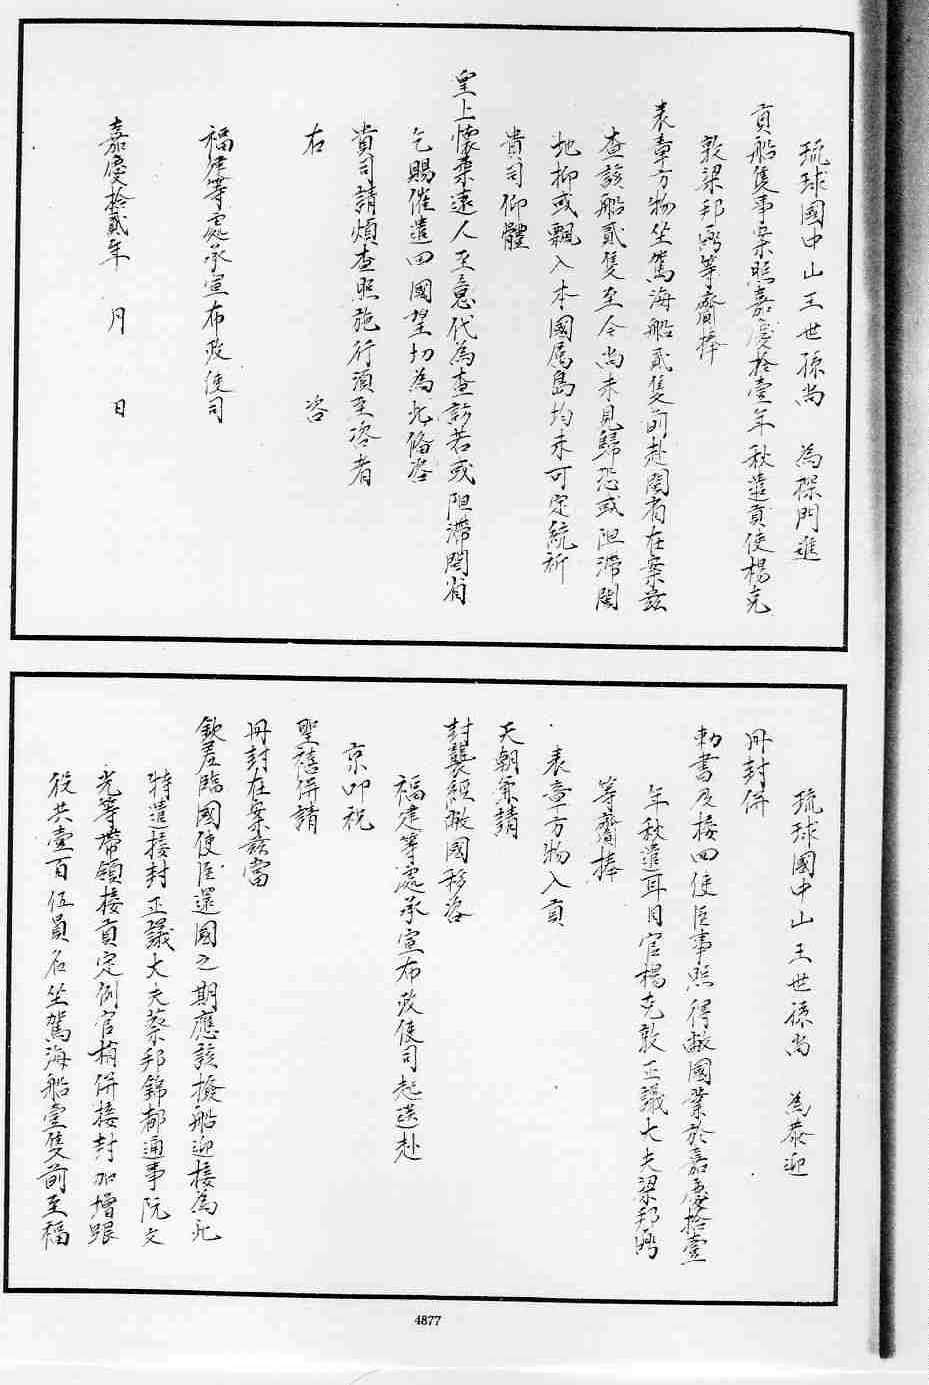 琉球國中山王世孫尚　為探問進
貢船隻事案照嘉慶拾壹年秋遣貢使楊克
敦梁邦弼等齎捧
表章方物坐駕海船貳隻前赴閩省在案茲
查該船貳隻至今尚未見歸恐或阻滯閩
地抑或飄入本國属島均未可定統祈
貴司仰體
皇上懷柔遠人至意代為查訪若或阻滯閩省
乞賜催遣回國望切為此條咨
貴司請煩查照施行須至咨者
右　　　咨
福建等處承宣布政使司
嘉慶拾貳年　月　日
琉球國中山王世孫尚　為恭迎
冊封併
勅書及接回使臣事照得敝國業於嘉慶拾壹
年秋遣耳目官楊克敦正議大夫梁邦弼
等齎捧
表章方物入貢
天朝兼請
封襲經敝國移咨
福建等處承宣布政使司起送赴
京叩祝
聖禧併請
冊封在案茲當
欽差臨國使臣還國之期應該撥船迎接為此
特遣接封正議大夫蔡邦錦都通事阮文
光等帶領接貢定例官梢併接封加增跟
役共壹百伍員名坐駕海船壹隻前至福
4877